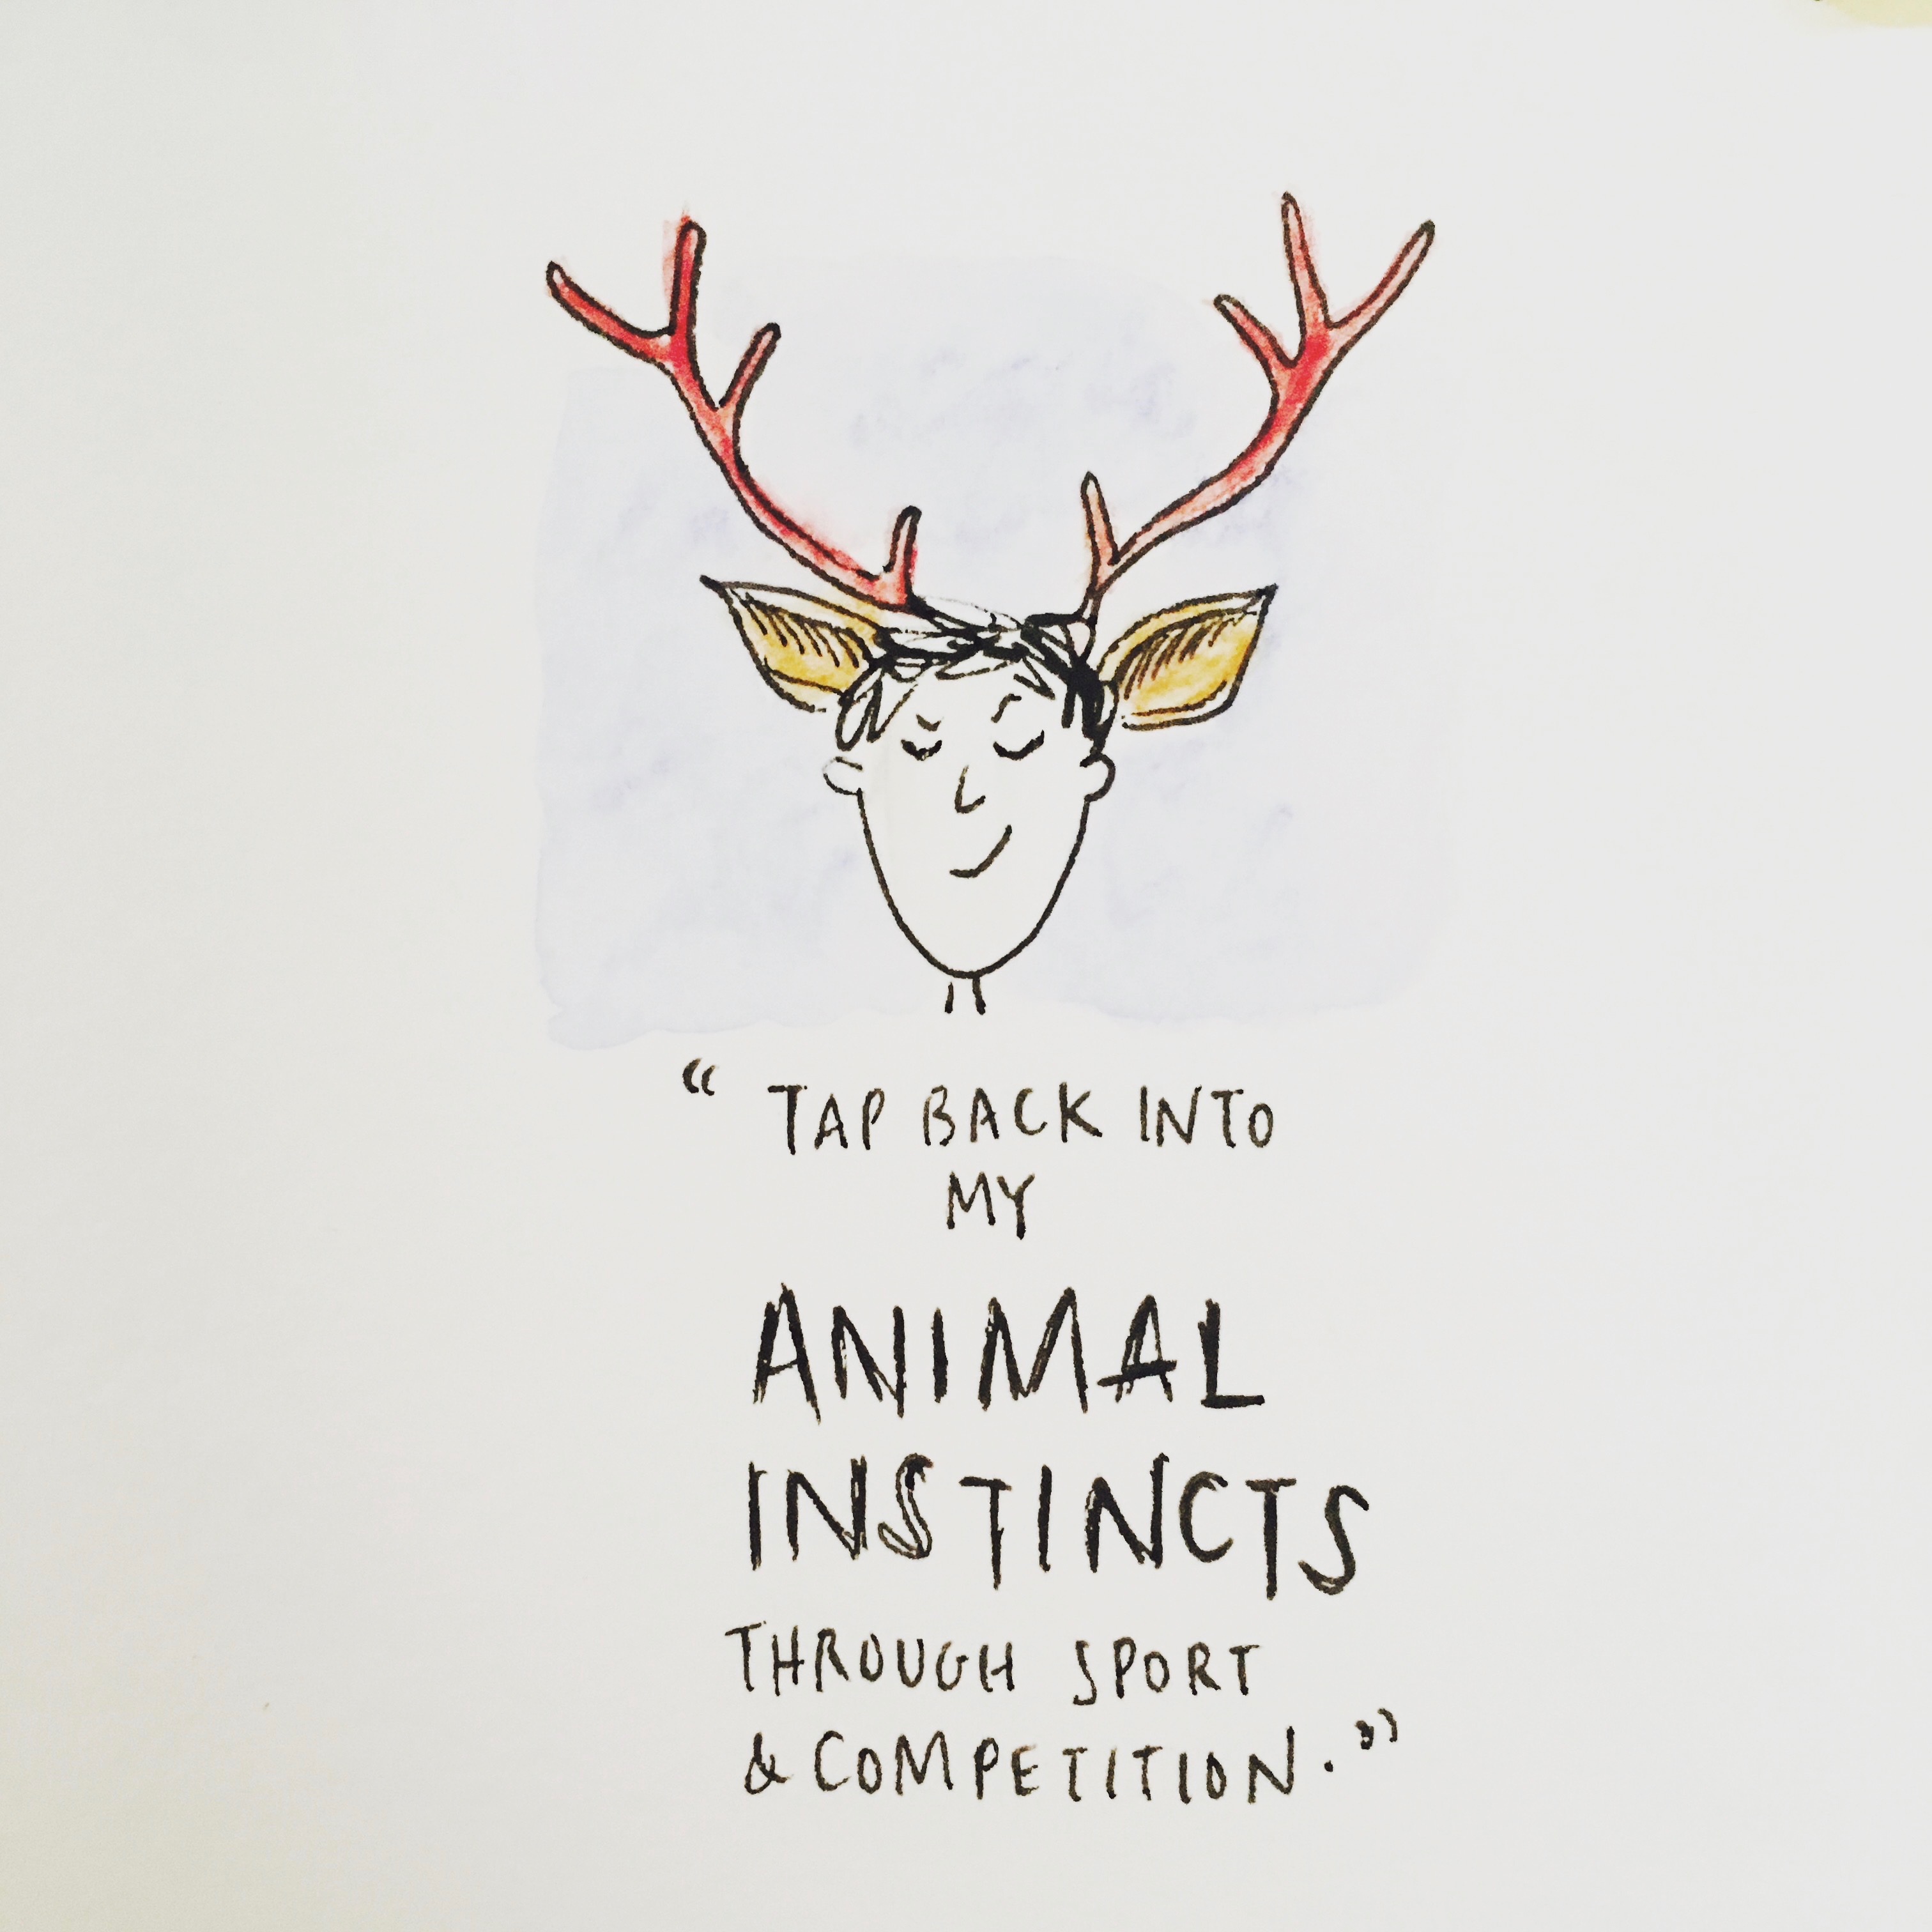 “ TAP BACK INTO
MY
ANIMAL
INSTINCTS
THROUGH SPORT
& COMPETITION.”